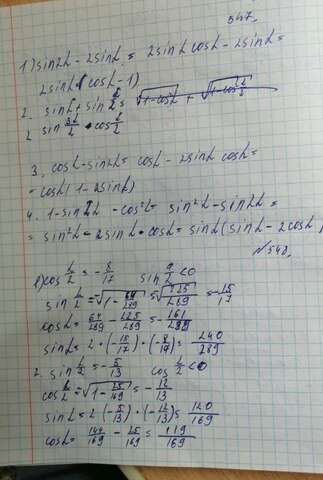 547.
1) sin2α - 2sinα = 2sinα cosα - 2sinα =
2sinα (cosα - 1)
2. sinα + sin α/2 =
2 sin 3α/2 · cos α/2
3. cosα - sin2α = cosα - 2sinα cosα =
= cosα (1 - 2sinα)
4. 1 - sin2α - cos²α = sin²α - sin2α =
= sin²α - 2sinα · cosα = sinα (sinα - 2cosα)
№548.
1) cos α/2 = -8/17 sin α/2 < 0
sin α/2 = √(1 - 64/289) = √(225/289) = -15/17
cosα = 64/289 - 225/289 = -161/289
sinα = 2 · (-15/17) · (-8/17) = 240/289
2. sin α/2 = -5/13 cos α/2 < 0
cos α/2 = √(1 - 25/169) = -12/13
sinα = 2 (-5/13) · (-12/13) = 120/169
cosα = 144/169 - 25/169 = 119/169